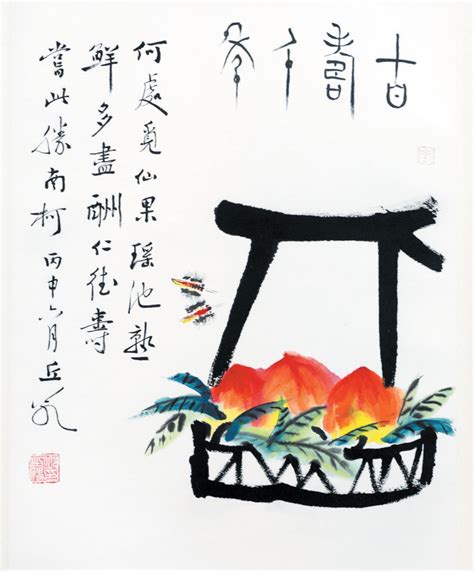 古壽千年
何處覓仙果瑤池熟
鮮多盡酬仁德壽
嘗此勝南柯丙申六月丘